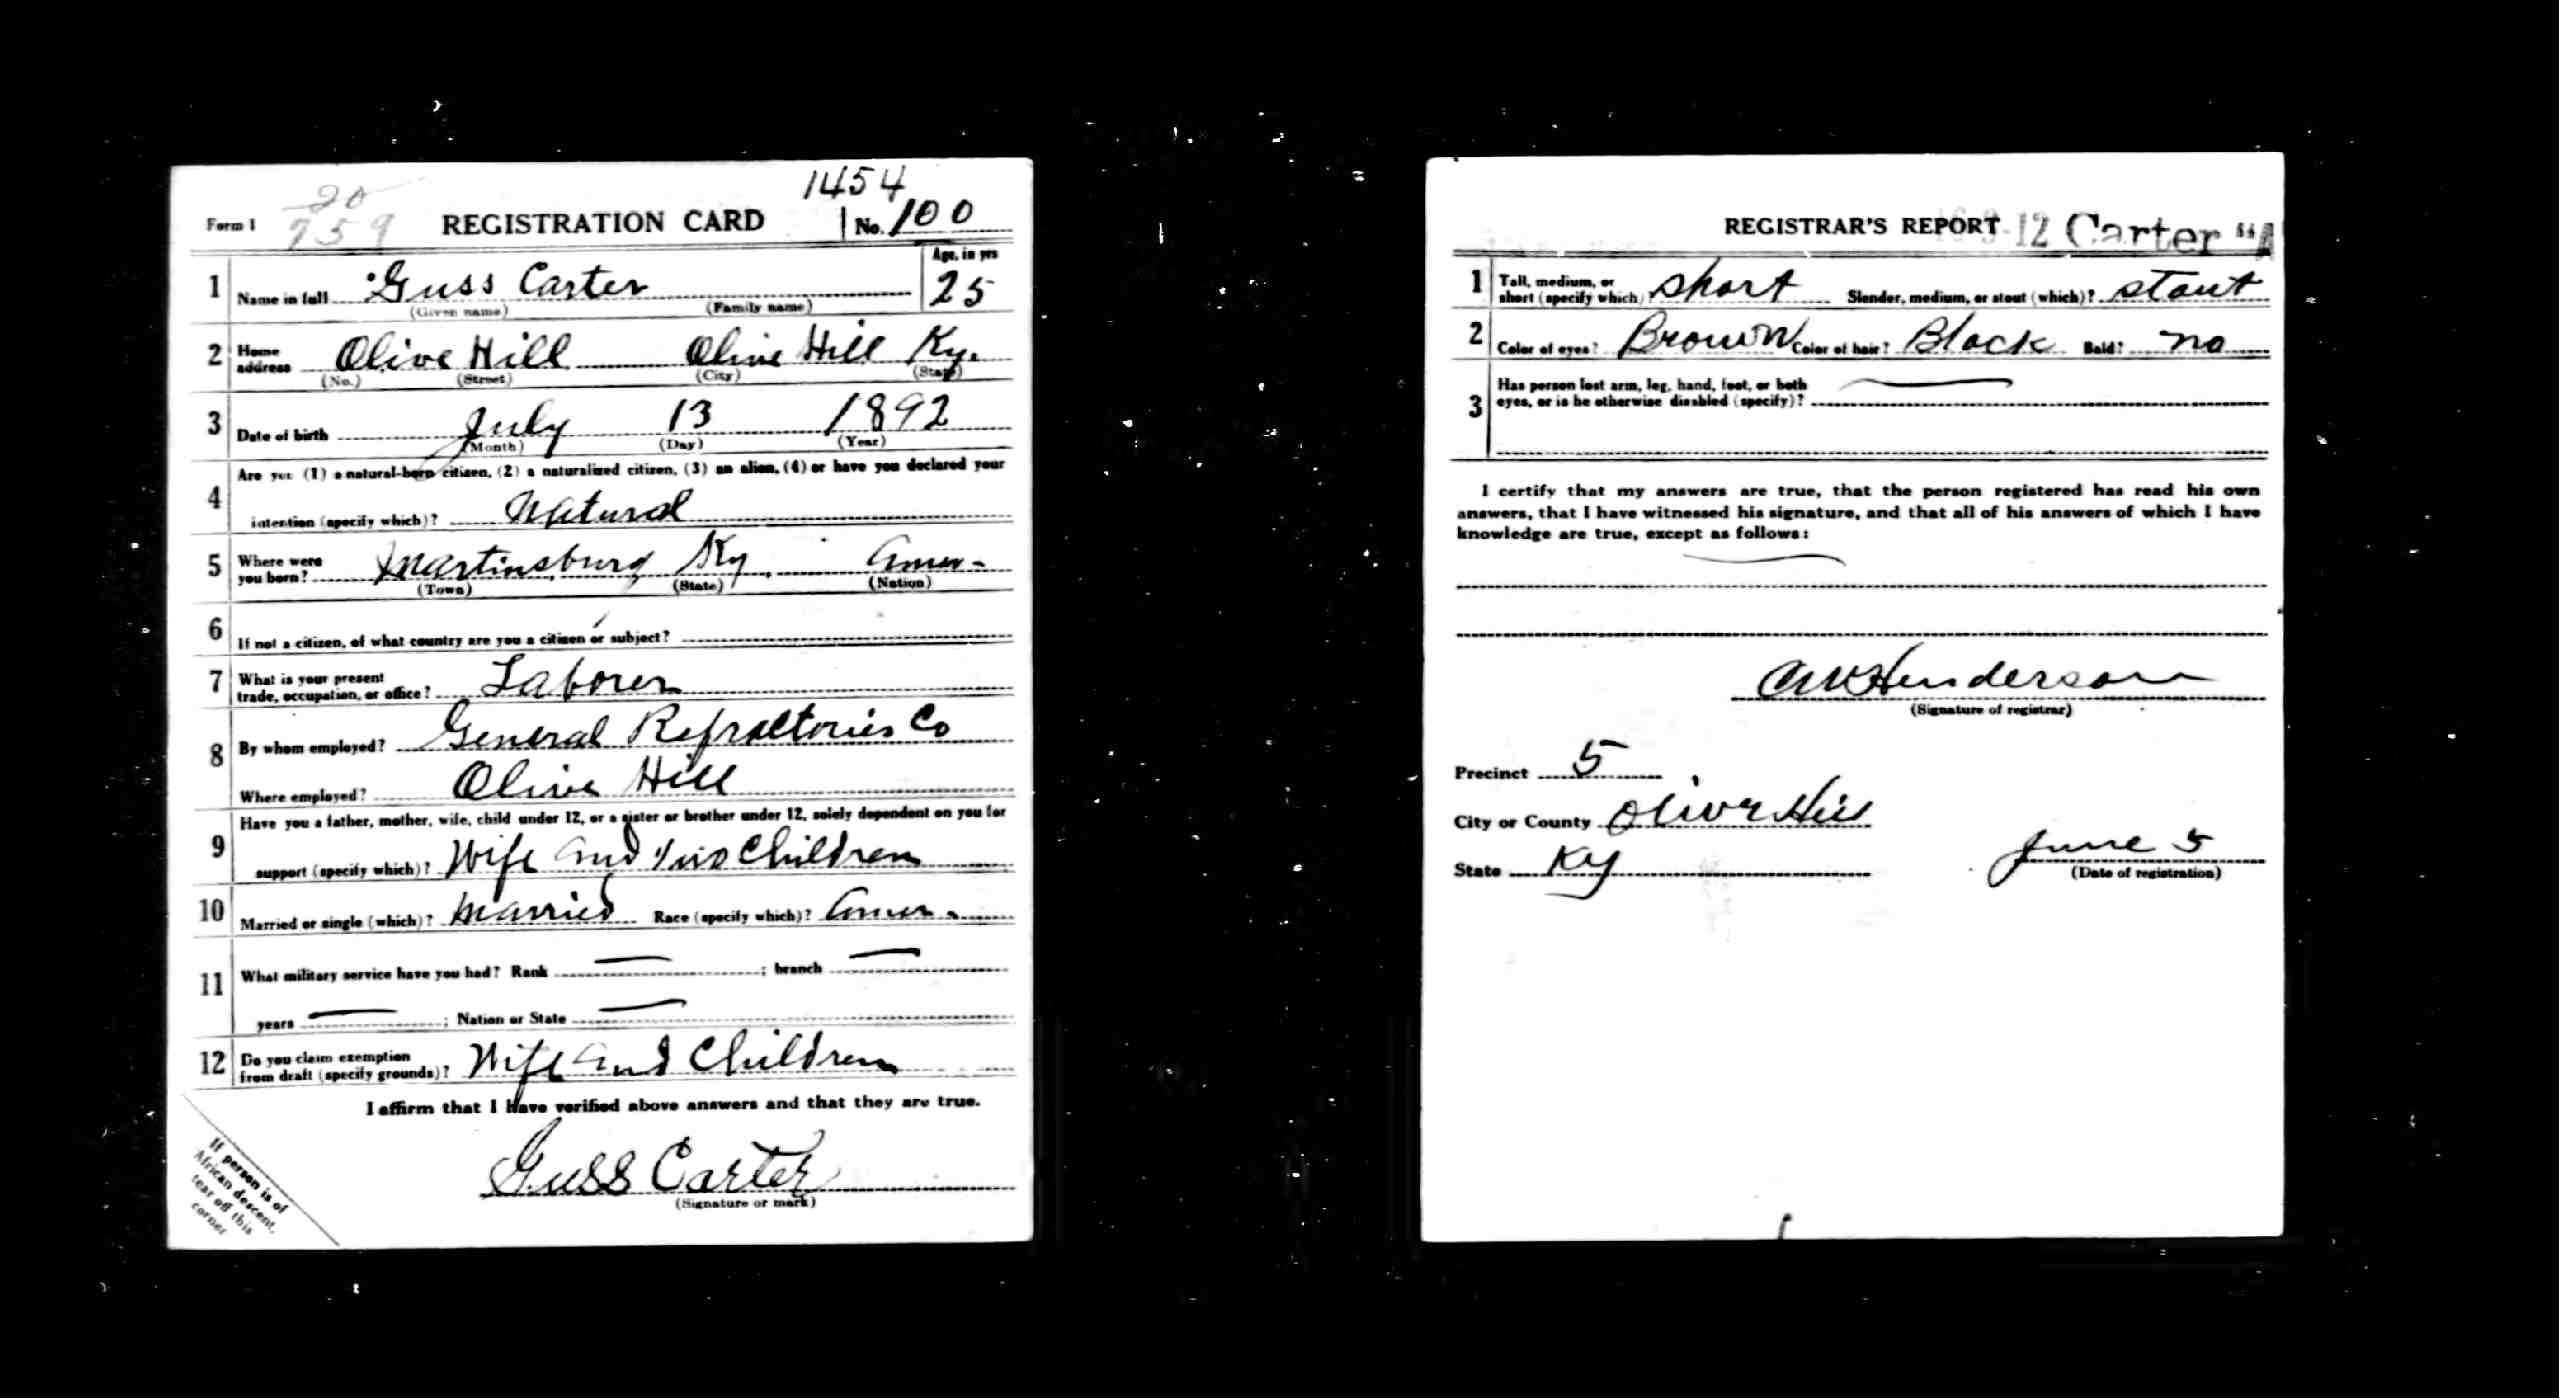 1454
20
759
Form 1 REGISTRATION CARD No. 100
1 Name in full Guss Carter Age, in yrs 25
(Given name) (Family name)
2 Home address Olive Hill Olive Hill Ky.
(No.) (Street) (City) (State)
3 Date of birth July 13 1892
(Month) (Day) (Year)
4 Are you (1) a natural-born citizen, (2) a naturalized citizen, (3) an alien, (4) or have you declared your
intention (specify which)? Natural
5 Where were you born? Martinsburg Ky Amer-
(Town) (State) (Nation)
6 If not a citizen, of what country are you a citizen or subject?
7 What is your present trade, occupation, or office? Laborer
8 By whom employed? General Refractories Co
Where employed? Olive Hill
9 Have you a father, mother, wife, child under 12, or a sister or brother under 12, solely dependent on you for
support (specify which)? Wife and two Children
10 Married or single (which)? Married Race (specify which)? Amer.
11 What military service have you had? Rank — ; branch —
years — ; Nation or State —
12 Do you claim exemption from draft (specify grounds)? Wife and Children
I affirm that I have verified above answers and that they are true.
Guss Carter
(Signature or mark)
If person is of
African descent,
tear off this
corner
REGISTRAR'S REPORT 12 Carter "A
1 Tall, medium, or short (specify which)? short Slender, medium, or stout (which)? stout
2 Color of eyes? Brown Color of hair? Black Bald? no
3 Has person lost arm, leg, hand, foot, or both
eyes, or is he otherwise disabled (specify)? —
I certify that my answers are true, that the person registered has read his own
answers, that I have witnessed his signature, and that all of his answers of which I have
knowledge are true, except as follows:
—
Henderson
(Signature of registrar)
Precinct 5
City or County Olive Hill
State Ky June 5
(Date of registration)